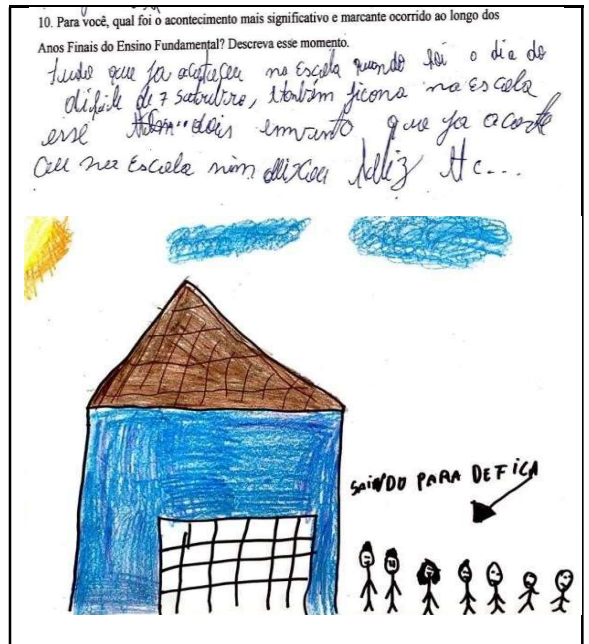 10. Para você, qual foi o acontecimento mais significativo e marcante ocorrido ao longo dos
Anos Finais do Ensino Fundamental? Descreva esse momento.
tudo que ja aconteceu na Escola quando foi o dia do
difile de 7 setembro, tambim ficona na escola
esse dois emvento que ja aconte
ceu na Escola mim deixou feliz
SAINDO PARA DEFICA